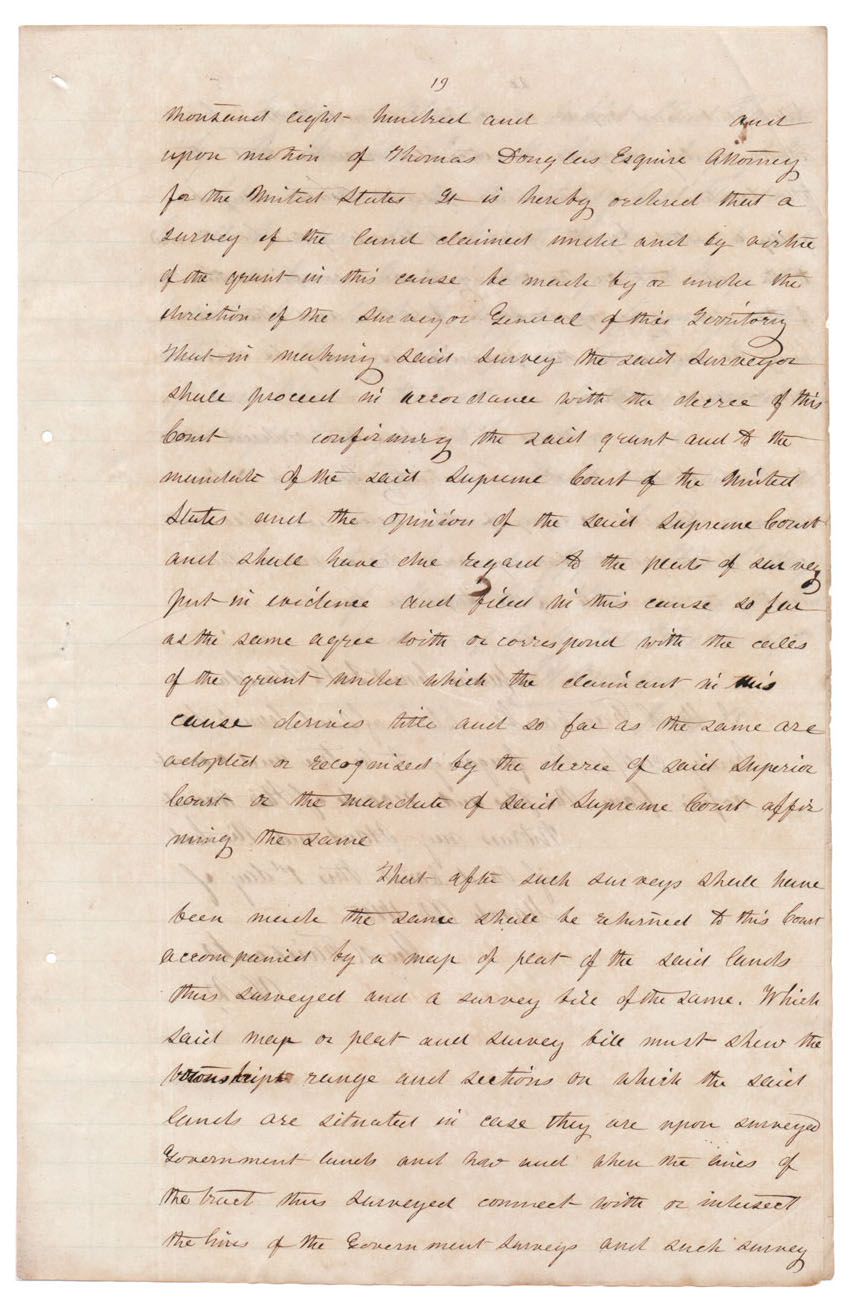 19
thousand eight hundred and and
upon motion of Thomas Douglas Esquire Attorney
for the United States It is hereby ordered that a
survey of the land claimed under and by virtue
of the grant in this cause be made by or under the
direction of the Surveyor General of this Territory
That in making said survey the said Surveyor
shall proceed in accordance with the decree of this
Court confirming the said grant and to the
mandate of the said Supreme Court of the United
States and the opinion of the said Supreme Court
and shall have due regard to the plats of survey
put in evidence and filed in this cause so far
as the same agree with or correspond with the calls
of the grant under which the claimant in this
cause derives title and so far as the same are
adopted or recognised by the decree of said Superior
Court or the mandate of said Supreme Court affir
ming the same
That after such surveys shall have
been made the same shall be returned to this Court
accompanied by a map of plat of the said lands
thus surveyed and a survey bill of the same. Which
said map or plat and survey bill must shew the
townships range and sections on which the said
lands are situated in case they are upon surveyed
Government lands and how and when the lines of
the tract thus surveyed connect with or intersect
the lines of the Government surveys and such survey